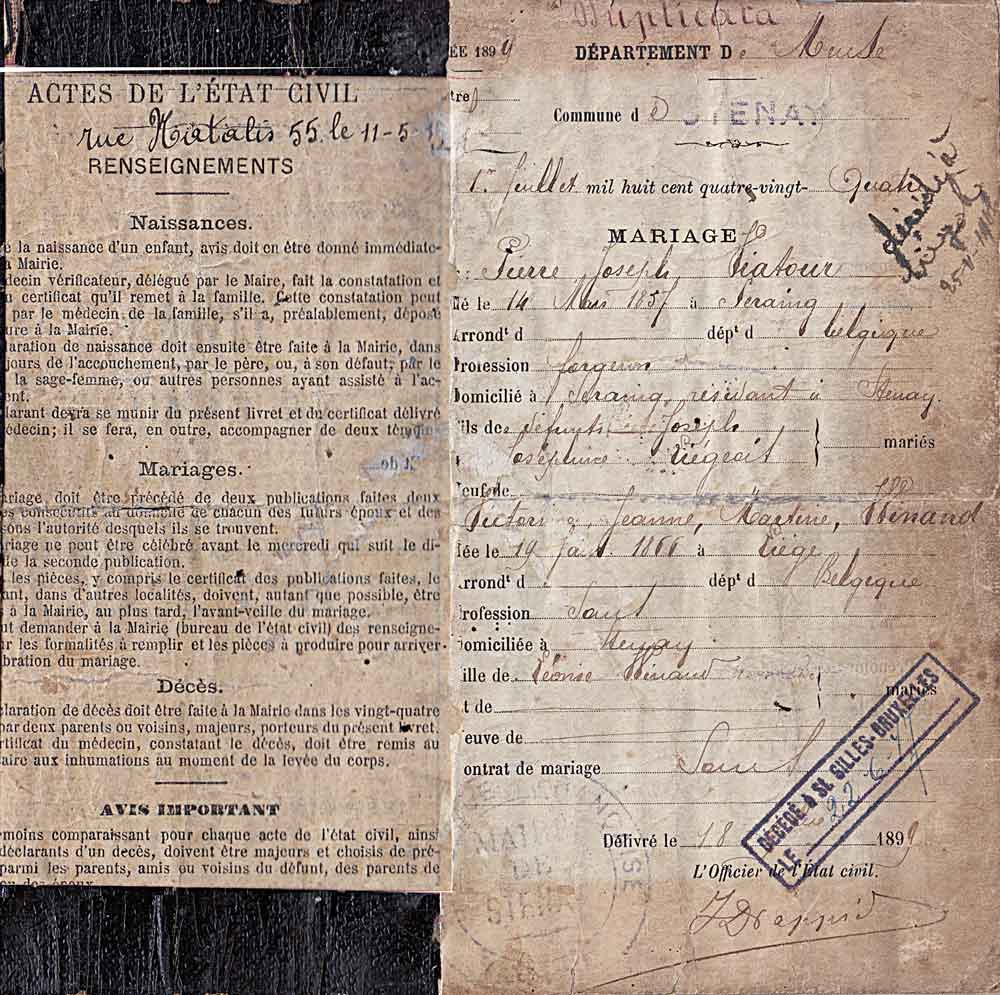 ACTES DE L'ÉTAT CIVIL
rue 55 le 11-5-
RENSEIGNEMENTS
Naissances.
la naissance d'un enfant, avis doit en être donné immédiate-
Mairie.
decin vérificateur, délégué par le Maire, fait la constatation et
certificat qu'il remet à la famille. Cette constatation peut
par le médecin de la famille, s'il a, préalablement, déposé
ure à la Mairie.
aration de naissance doit ensuite être faite à la Mairie, dans
jours de l'accouchement, par le père, ou, à son défaut, par le
la sage-femme, ou autres personnes ayant assisté à l'ac-
ent.
larant devra se munir du présent livret et du certificat délivré
édecin; il se fera, en outre, accompagner de deux témoins
Mariages.
ariage doit être précédé de deux publications faites deux
es consécutifs au domicile de chacun des futurs époux et des
sons l'autorité desquels ils se trouvent.
riage ne peut être célébré avant le mercredi qui suit le di-
de la seconde publication.
les pièces, y compris le certificat des publications faites, le
ant, dans d'autres localités, doivent, autant que possible, être
à la Mairie, au plus tard, l'avant-veille du mariage.
ut demander à la Mairie (bureau de l'état civil) des renseigne-
r les formalités à remplir et les pièces à produire pour arriver
bration du mariage.
Décès.
laration de décès doit être faite à la Mairie dans les vingt-quatre
par deux parents ou voisins, majeurs, porteurs du présent livret.
rtificat du médecin, constatant le décès, doit être remis au
aire aux inhumations au moment de la levée du corps.
AVIS IMPORTANT
moins comparaissant pour chaque acte de l'état civil, ainsi
déclarants d'un decès, doivent être majeurs et choisis de pré-
parmi les parents, amis ou voisins du défunt, des parents de
ou des époux.
Duplicata
ÉE 1899
DÉPARTEMENT De Meuse
Commune d e STENAY
1er Juillet mil huit cent quatre-vingt- Quatre
MARIAGE
Pierre Joseph Viatour
né le 14 Mars 1857 à Seraing
Arrondt d dépt d belgique
Profession forgeron
Domicilié à Seraing, résidant à Stenay.
fils de défunts Joseph
Joséphine Liégeois
mariés
Veuf de
Jeanne, Martine, Hénand
née le 19 1866 à Liège
Arrondt d dépt d Belgique
Profession Sans
Domiciliée à Stenay
ille de Léonie Hénand
t de
mariés
euve de
ontrat de mariage Sans
Délivré le 18 1899
L'Officier de l'État civil.
décédé à
25
DÉCÉDÉ À St. GILLES-BRUXELLES
LE 22.6.